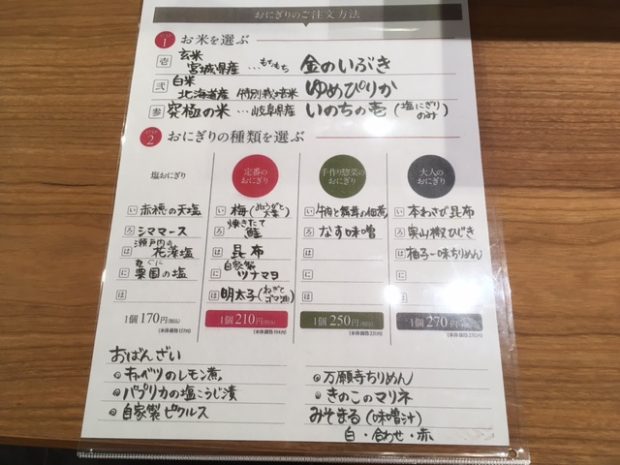 おにぎりのご注文方法
STEP 1 お米を選ぶ
壱 玄米
宮城県産 …もちもち 金のいぶき
弐 白米
北海道産 特別栽培米 ゆめぴりか
参 究極の米 …岐阜県産 いのちの壱 (塩にぎりのみ)
STEP 2 おにぎりの種類を選ぶ
塩おにぎり
い 赤穂の天塩
ろ シママース
は 瀬戸内の花藻塩
に 粟国の塩
ほ
1個 170円(税込)
定番のおにぎり
い 梅
ろ 焼きたて鮭
は 昆布
に 自家製ツナマヨ
ほ 明太子(ねぎとゴマ油)
1個 210円(税込)
手作り惣菜のおにぎり
い 牛肉と舞茸の佃煮
ろ なす味噌
は
に
ほ
1個 250円(税込)
大人のおにぎり
い 本わさび昆布
ろ 実山椒ひじき
は 柚子一味ちりめん
に
ほ
1個 270円(税込)
おばんざい
キャベツのレモン煮
パプリカの塩こうじ漬
自家製ピクルス
万願寺ちりめん
きのこのマリネ
みそまる(味噌汁)
白・合わせ・赤